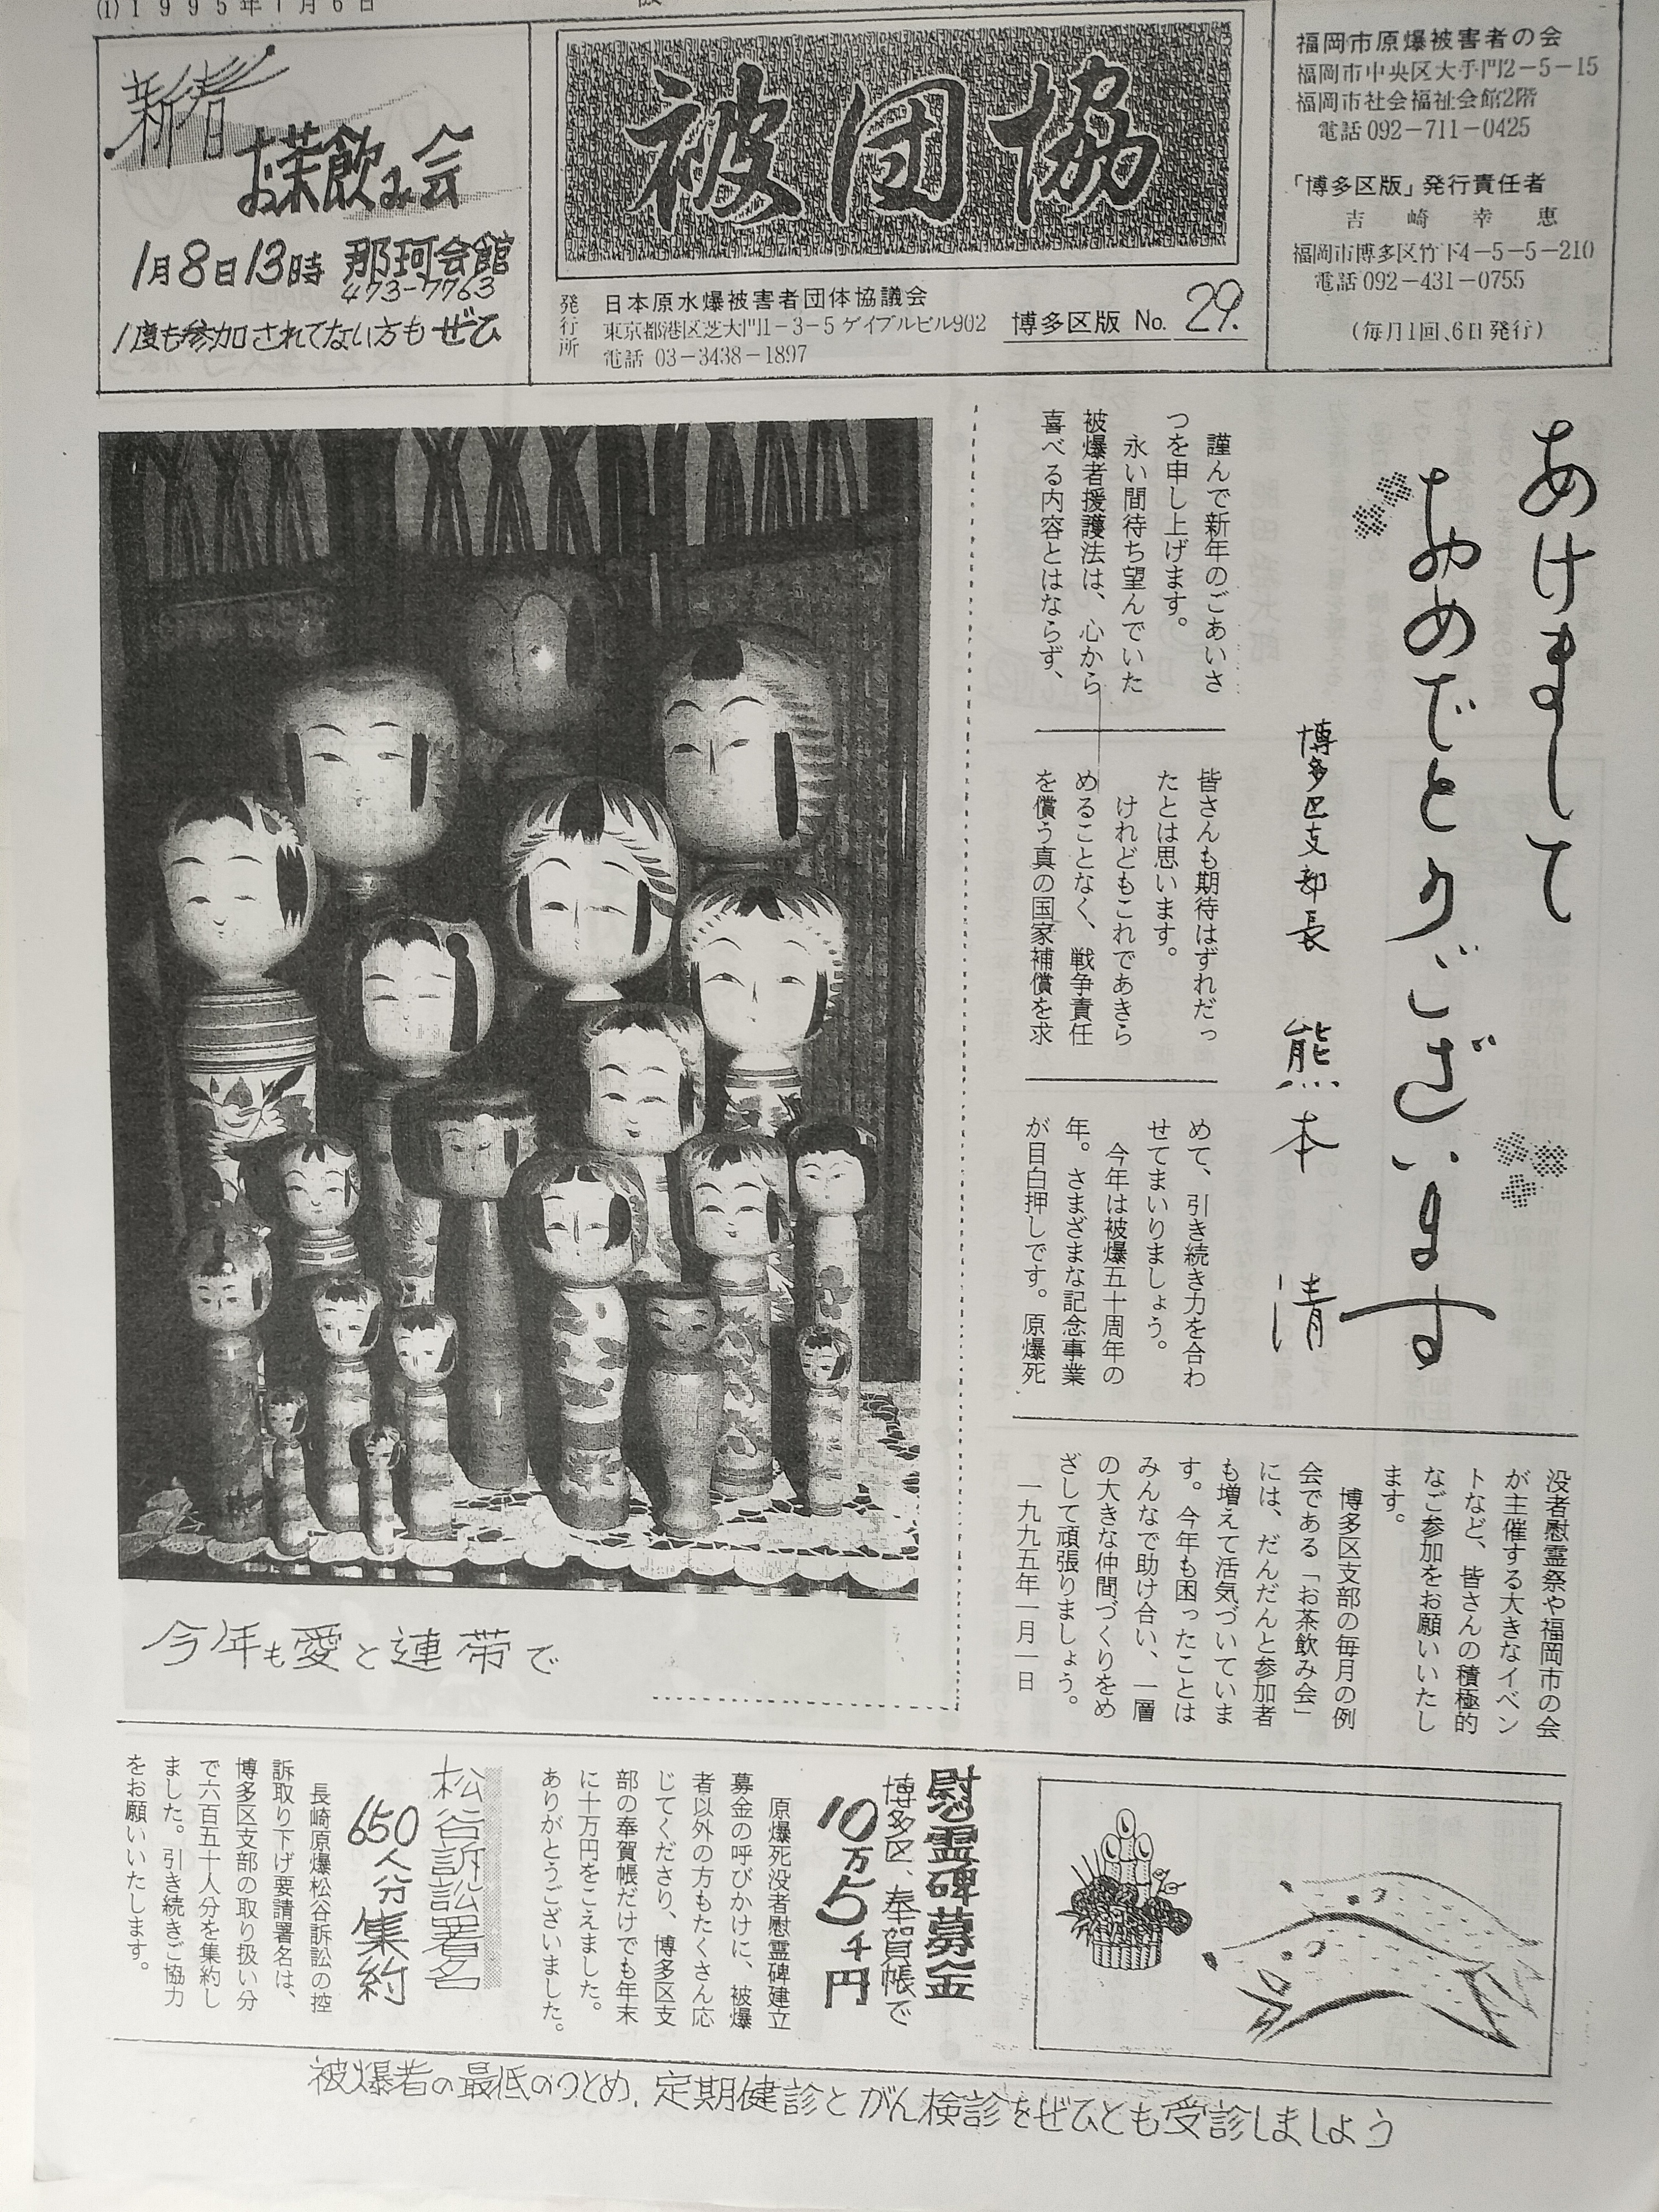 (1)1995年1月6日
新春
お茶飲み会
1月8日13時 那珂会館
473-7763
1度も参加されてない方もぜひ
被団協
発行所
日本原水爆被害者団体協議会
東京都港区芝大門1-3-5 ゲイブルビル902
電話 03-3438-1897
博多区版 No. 29.
福岡市原爆被害者の会
福岡市中央区大手門2-5-15
福岡市社会福祉会館2階
電話 092-711-0425
「博多区版」発行責任者
吉崎幸恵
福岡市博多区竹下4-5-5-210
電話 092-431-0755
(毎月1回、6日発行)
あけまして
おめでとうございます
博多区支部長 熊本 清
謹んで新年のごあいさ
つを申し上げます。
永い間待ち望んでいた
被爆者援護法は、心から
喜べる内容とはならず、
皆さんも期待はずれだっ
たとは思います。
けれどもこれであきら
めることなく、戦争責任
を償う真の国家補償を求
めて、引き続き力を合わ
せてまいりましょう。
今年は被爆五十周年の
年。さまざまな記念事業
が目白押しです。原爆死
没者慰霊祭や福岡市の会
が主催する大きなイベン
トなど、皆さんの積極的
なご参加をお願いいたし
ます。
博多区支部の毎月の例
会である「お茶飲み会」
には、だんだんと参加者
も増えて活気づいていま
す。今年も困ったことは
みんなで助け合い、一層
の大きな仲間づくりをめ
ざして頑張りましょう。
一九九五年一月一日
今年も愛と連帯で
慰霊碑募金
博多区、奉賀帳で
10万5千円
原爆死没者慰霊碑建立
募金の呼びかけに、被爆
者以外の方もたくさん応
じてくださり、博多区支
部の奉賀帳だけでも年末
に十万円をこえました。
ありがとうございました。
松谷訴訟署名
650人分集約
長崎原爆松谷訴訟の控
訴取り下げ要請署名は、
博多区支部の取り扱い分
で六百五十人分を集約し
ました。引き続きご協力
をお願いいたします。
被爆者の最低のつとめ、定期健診とがん検診をぜひとも受診しましょう